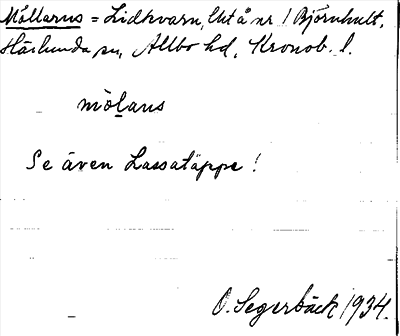 Möllarns = Lidkvarn, Utå nr 1 Björnhult,
Härlunda sn, Allbo hd, Kronob. l.
mò̀lans
Se även Lassatäppe!
O. Segerbäck 1934.